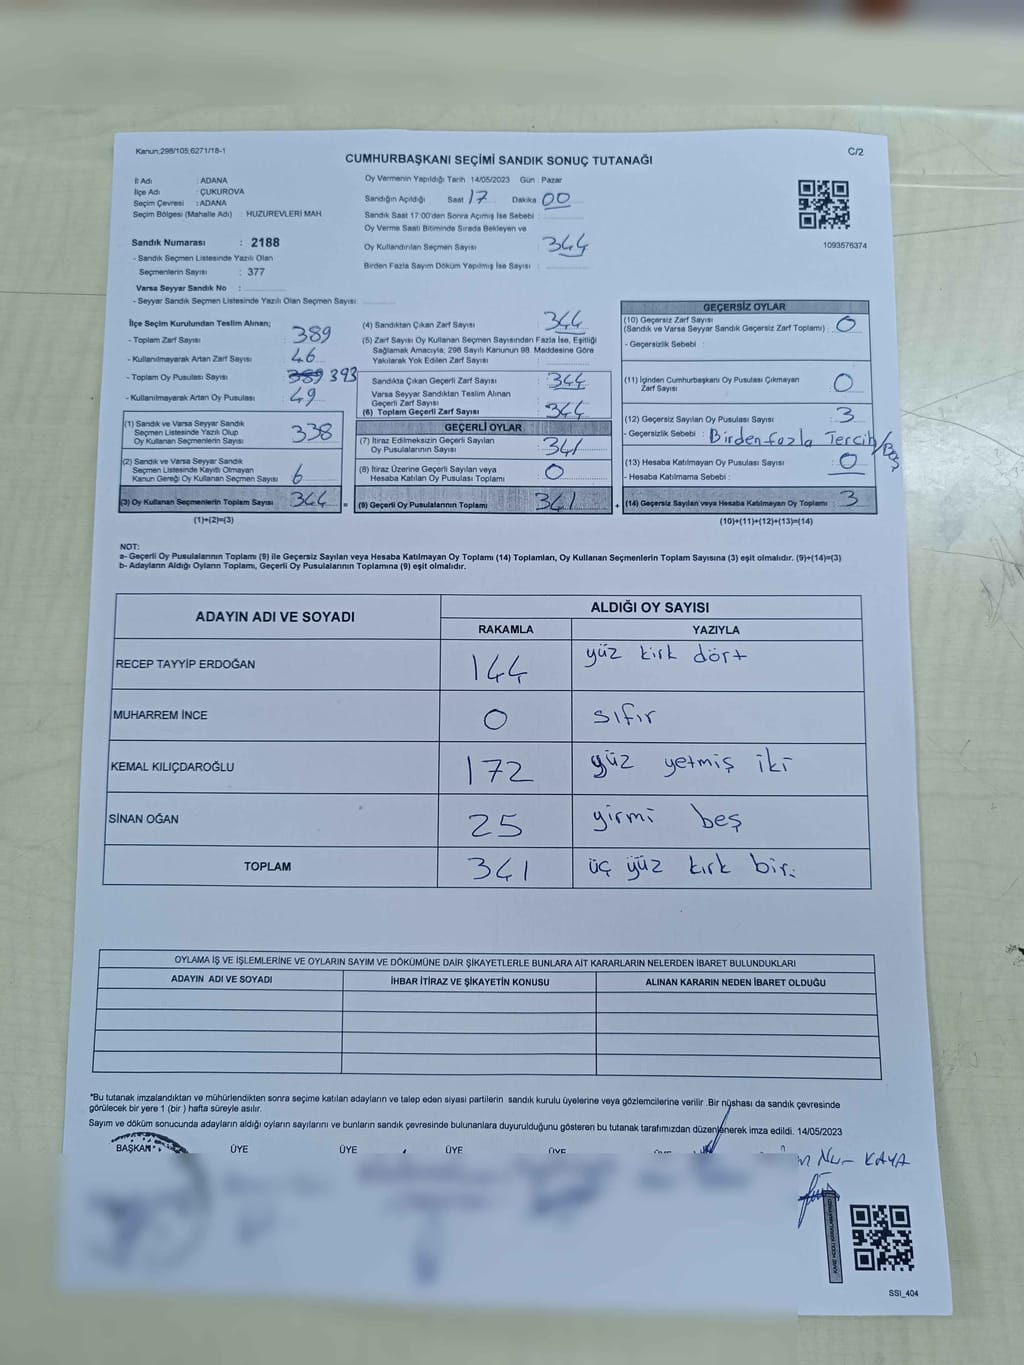 Kanun:298/105,6271/18-1
C/2
CUMHURBAŞKANI SEÇİMİ SANDIK SONUÇ TUTANAĞI
İl Adı : ADANA
İlçe Adı : ÇUKUROVA
Seçim Çevresi : ADANA
Seçim Bölgesi (Mahalle Adı) : HUZUREVLERİ MAH.
Sandık Numarası : 2188
- Sandık Seçmen Listesinde Yazılı Olan
Seçmenlerin Sayısı : 377
Varsa Seyyar Sandık No :
- Seyyar Sandık Seçmen Listesinde Yazılı Olan Seçmen Sayısı:
Oy Vermenin Yapıldığı Tarih :14/05/2023 Gün : Pazar
Sandığın Açıldığı Saat 17 Dakika 00
Sandık Saat 17:00'den Sonra Açılmış İse Sebebi :
Oy Verme Saati Bitiminde Sırada Bekleyen ve
Oy Kullandırılan Seçmen Sayısı : 344
Birden Fazla Sayım Döküm Yapılmış İse Sayısı :
1093576374
İlçe Seçim Kurulundan Teslim Alınan;
- Toplam Zarf Sayısı : 389
- Kullanılmayarak Artan Zarf Sayısı : 46
- Toplam Oy Pusulası Sayısı : 389 393
- Kullanılmayarak Artan Oy Pusulası : 49
(1) Sandık ve Varsa Seyyar Sandık
Seçmen Listesinde Yazılı Olup
Oy Kullanan Seçmenlerin Sayısı : 338
(2) Sandık ve Varsa Seyyar Sandık
Seçmen Listesinde Kayıtlı Olmayan
Kanun Gereği Oy Kullanan Seçmen Sayısı : 6
(3) Oy Kullanan Seçmenlerin Toplam Sayısı : 344
(1)+(2)=(3)
(4) Sandıktan Çıkan Zarf Sayısı : 344
(5) Zarf Sayısı Oy Kullanan Seçmen Sayısından Fazla İse, Eşitliği
Sağlamak Amacıyla; 298 Sayılı Kanunun 98. Maddesine Göre
Yakılarak Yok Edilen Zarf Sayısı :
Sandıkta Çıkan Geçerli Zarf Sayısı : 344
Varsa Seyyar Sandıktan Teslim Alınan
Geçerli Zarf Sayısı :
(6) Toplam Geçerli Zarf Sayısı : 344
GEÇERLİ OYLAR
(7) İtiraz Edilmeksizin Geçerli Sayılan
Oy Pusulalarının Sayısı : 341
(8) İtiraz Üzerine Geçerli Sayılan veya
Hesaba Katılan Oy Pusulası Toplamı : 0
= (9) Geçerli Oy Pusulalarının Toplamı : 341
GEÇERSİZ OYLAR
(10) Geçersiz Zarf Sayısı
(Sandık ve Varsa Seyyar Sandık Geçersiz Zarf Toplamı) : 0
- Geçersizlik Sebebi :
(11) İçinden Cumhurbaşkanı Oy Pusulası Çıkmayan
Zarf Sayısı : 0
(12) Geçersiz Sayılan Oy Pusulası Sayısı : 3
- Geçersizlik Sebebi : Birden fazla Tercih/Boş
(13) Hesaba Katılmayan Oy Pusulası Sayısı : 0
- Hesaba Katılmama Sebebi :
+ (14) Geçersiz Sayılan veya Hesaba Katılmayan Oy Toplamı : 3
(10)+(11)+(12)+(13)=(14)
NOT:
a- Geçerli Oy Pusulalarının Toplamı (9) ile Geçersiz Sayılan veya Hesaba Katılmayan Oy Toplamı (14) Toplamları, Oy Kullanan Seçmenlerin Toplam Sayısına (3) eşit olmalıdır. (9)+(14)=(3)
b- Adayların Aldığı Oyların Toplamı, Geçerli Oy Pusulalarının Toplamına (9) eşit olmalıdır.
ADAYIN ADI VE SOYADI
ALDIĞI OY SAYISI
RAKAMLA YAZIYLA
RECEP TAYYİP ERDOĞAN 144 yüz kırk dört
MUHARREM İNCE 0 sıfır
KEMAL KILIÇDAROĞLU 172 yüz yetmiş iki
SİNAN OĞAN 25 yirmi beş
TOPLAM 341 üç yüz kırk bir.
OYLAMA İŞ VE İŞLEMLERİNE VE OYLARIN SAYIM VE DÖKÜMÜNE DAİR ŞİKAYETLERLE BUNLARA AİT KARARLARIN NELERDEN İBARET BULUNDUKLARI
ADAYIN ADI VE SOYADI İHBAR İTİRAZ VE ŞİKAYETİN KONUSU ALINAN KARARIN NEDEN İBARET OLDUĞU
*Bu tutanak imzalandıktan ve mühürlendikten sonra seçime katılan adayların ve talep eden siyasi partilerin sandık kurulu üyelerine veya gözlemcilerine verilir .Bir nüshası da sandık çevresinde
görülecek bir yere 1 (bir ) hafta süreyle asılır.
Sayım ve döküm sonucunda adayların aldığı oyların sayılarını ve bunların sandık çevresinde bulunanlara duyurulduğunu gösteren bu tutanak tarafımızdan düzenlenerek imza edildi. 14/05/2023
BAŞKAN ÜYE ÜYE ÜYE ÜYE
Nur KAYA
SSI_404